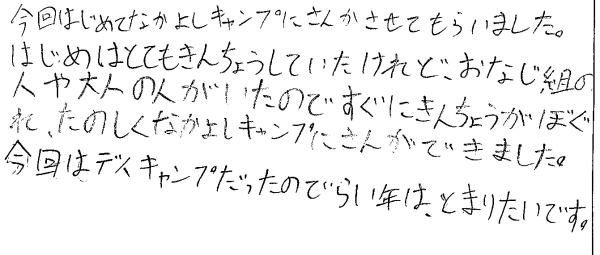 今回はじめてなかよしキャンプにさんかさせてもらいました。
はじめはとてもきんちょうしていたけれど、おなじ組の
人や大人の人がいたのですぐにきんちょうがほぐ
れ、たのしくなかよしキャンプにさんかできました。
今回はデイキャンプだったのでらい年は、とまりたいです。